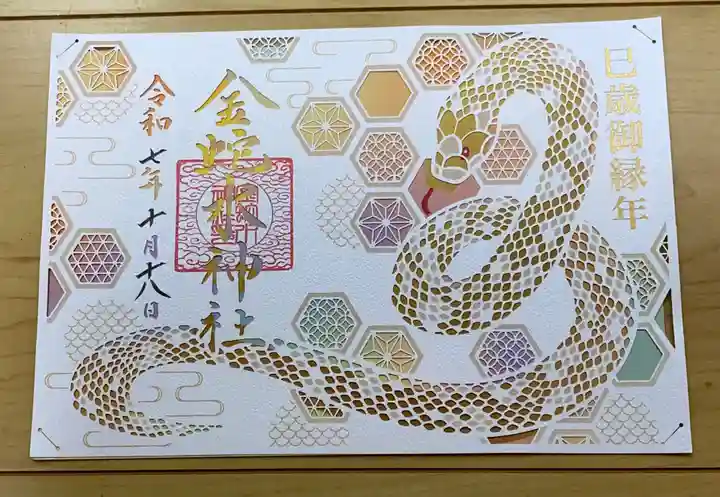 巳歳御縁年
金蛇水神社
令和七年十月十八日